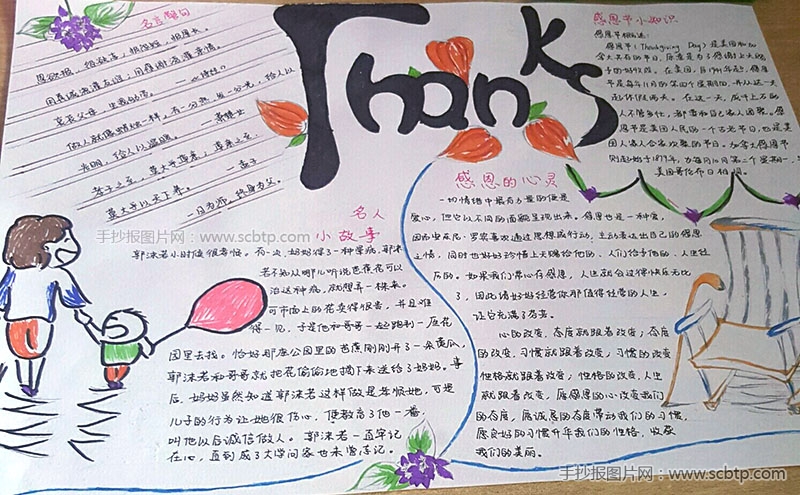 名言警句
恩欲报，怨欲忘；报怨短，报恩长。
用真诚浇灌友谊，用孝顺浇灌亲情。
哀哀父母，生我劬劳。——《诗经》
做人就像蜡烛一样，有一分热，发一分光，给人以
光明，给人以温暖。——萧楚女
孝子之至，莫大乎尊亲；尊亲之至，
莫大乎以天下养。——孟子
一日为师，终身为父。
Thanks
感恩节小知识
感恩节概述：
感恩节（Thanksgiving Day）是美国和加
拿大共有的节日，原意是为了感谢上天赐
予的好收成。在美国，自1941年起，感恩
节是每年11月的第四个星期四，并从这一天
起休假两天。在这一天，成千上万的
人不管多忙，都要和自己家人团聚。感
恩节是美国人民的一个古老节日，也是美
国人合家欢聚的节日。加拿大感恩节
则起始于1879年，为每年10月第二个星期一，与
美国哥伦布日相同。
名人
小故事
郭沫若小时候很孝顺。有一次，妈妈得了一种晕病，郭沫
若不知从哪儿听说芭蕉花可以
治这种病，就想弄一株来。
可市面上的花卖得很贵，并且难
得一见，于是他和哥哥一起跑到一座花
园里去找。恰好那座公园里的芭蕉刚刚开了一朵黄瓜，
郭沫若和哥哥就把花偷偷地摘下来送给了妈妈。事
后，妈妈虽然知道郭沫若这样做是孝顺她，可是
儿子的行为让她很伤心，便教育了他一番，
叫他以后诚信做人。郭沫若一直牢记
在心，直到成了大学问家也未曾忘记。
感恩的心灵
一切情绪中最有力量的便是
爱心，但它以不同的面貌呈现出来。感恩也是一种爱，
因而安东尼·罗宾喜欢通过思想或行动，主动表达出自己的感恩
之情，同时也好好珍惜上天赐给他的，人们给予他的，人生经
历的。如果我们常心存感恩，人生就会过得快乐无比
，因此请好好经营你那值得经营的人生，
让它充满了芬芳。
心的改变，态度就跟着改变；态度
的改变，习惯就跟着改变；习惯的改变
性格就跟着改变；性格的改变，人生
就跟着改变。愿感恩的心改变我们
的态度，愿诚恳的态度带动我们的习惯，
愿良好的习惯升华我们的性格，收获
我们的美丽。
手抄报图片网：www.scbtp.com
手抄报图片网：www.scbtp.com